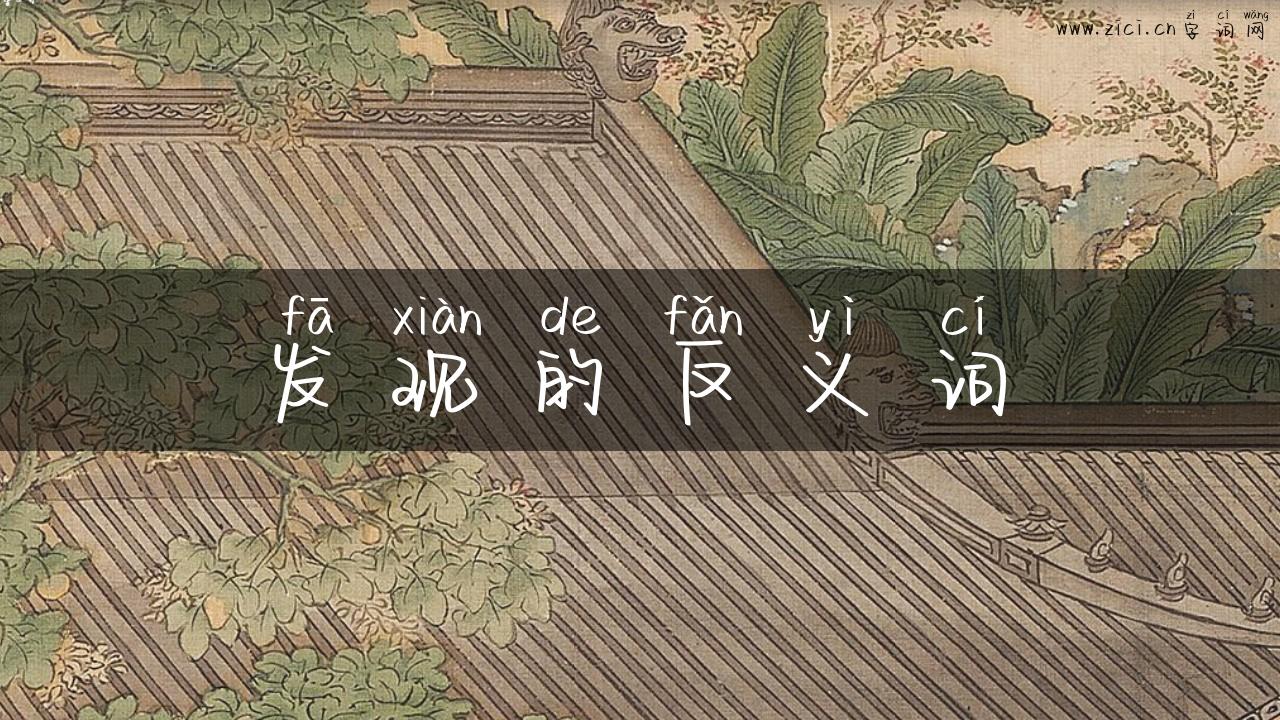 zì cí wǎng
www.zici.cn 字 词 网
fā xiàn de fǎn yì cí
发 现 的 反 义 词